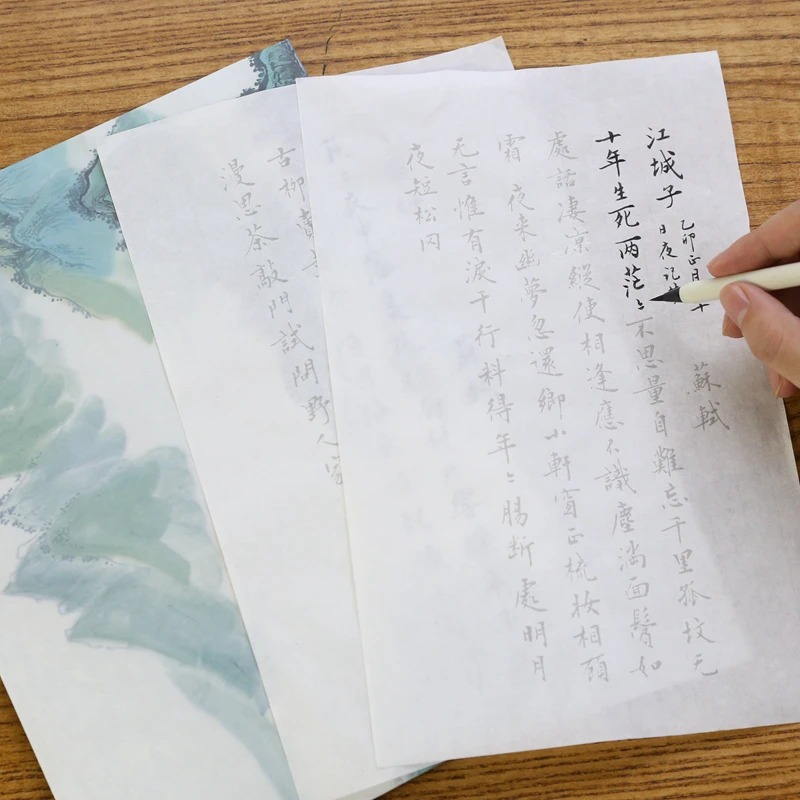 江城子
乙卯正月
十
日夜记
蘇軾
十年生死两茫〻不思量自難忘千里孤坟无
處話凄凉縱使相逢應不識塵满面鬢如
霜 夜来幽夢忽還鄉小軒窗正梳妆相顾
无言惟有淚千行料得年〻腸断處明月
夜短松冈
古柳
漫思茶敲門試問野人家